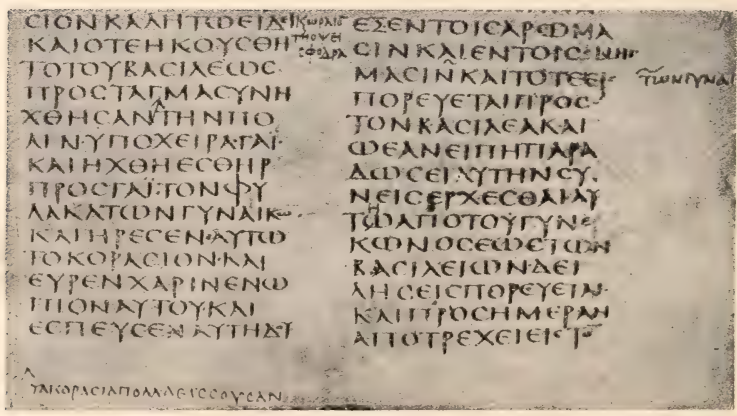 ϹΙΟΝΚΑΛΗΤΩΕΙΔΕΙ
ΚΑΙΟΤΕΗΚΟΥϹΘΗ
ΤΟΤΟΥΒΑϹΙΛΕΩϹ
ΠΡΟϹΤΑΓΜΑϹΥΝΗ
ΧΘΗϹΑΝΤΗΝΠΟ
ΛΙΝ·ΥΠΟΧΕΙΡΑ·ΓΑΪ·
ΚΑΙΗΧΘΗΕϹΘΗΡ
ΠΡΟϹΓΑΪ·ΤΟΝΦΥ
ΛΑΚΑΤΩΝΓΥΝΑΙΚΩ
ΚΑΙΗΡΕϹΕΝ·ΑΥΤΩ
ΤΟΚΟΡΑϹΙΟΝ·ΚΑΙ
ΕΥΡΕΝΧΑΡΙΝΕΝΩ
ΠΙΟΝΑΥΤΟΥ·ΚΑΙ
ΕϹΠΕΥϹΕΝΑΥΤΗΔΥ
ΚΩΡΑΙΑ
ΤΗΟΨΕΙ
ϹΦΟΔΡΑ
ΕϹΕΝΤΟΙϹΑΡΩΜΑ
ϹΙΝΚΑΙΕΝΤΟΙϹϹΜΗΓ
ΜΑϹΙΝΚΑΙΤΟΤΕΕΙϹ
ΠΟΡΕΥΕΤΑΙΠΡΟϹ
ΤΟΝΒΑϹΙΛΕΑΚΑΙ
ΩΕΑΝΕΙΠΗΠΑΡΑ
ΔΩϹΕΙΑΥΤΗΝϹΥ
ΝΕΙϹΕΡΧΕϹΘΑΙΑΥ
ΤΩΑΠΟΤΟΥΓΥΝΕ
ΚΩΝΟϹΕΩϹΤΩΝ
ΒΑϹΙΛΕΙΩΝ·ΔΕΙ
ΛΗϹΕΙϹΠΟΡΕΥΕΤΑΙ·
ΚΑΙΠΡΟϹΗΜΕΡΑΝ
ΑΠΟΤΡΕΧΕΙΕΙϹΤΟ
ΤΩΝΓΥΝΑΙ
ΥΑΙΚΟΡΑϹΙΑΠΟΛΛΑΕΙϹϹΟΥϹΑΝ